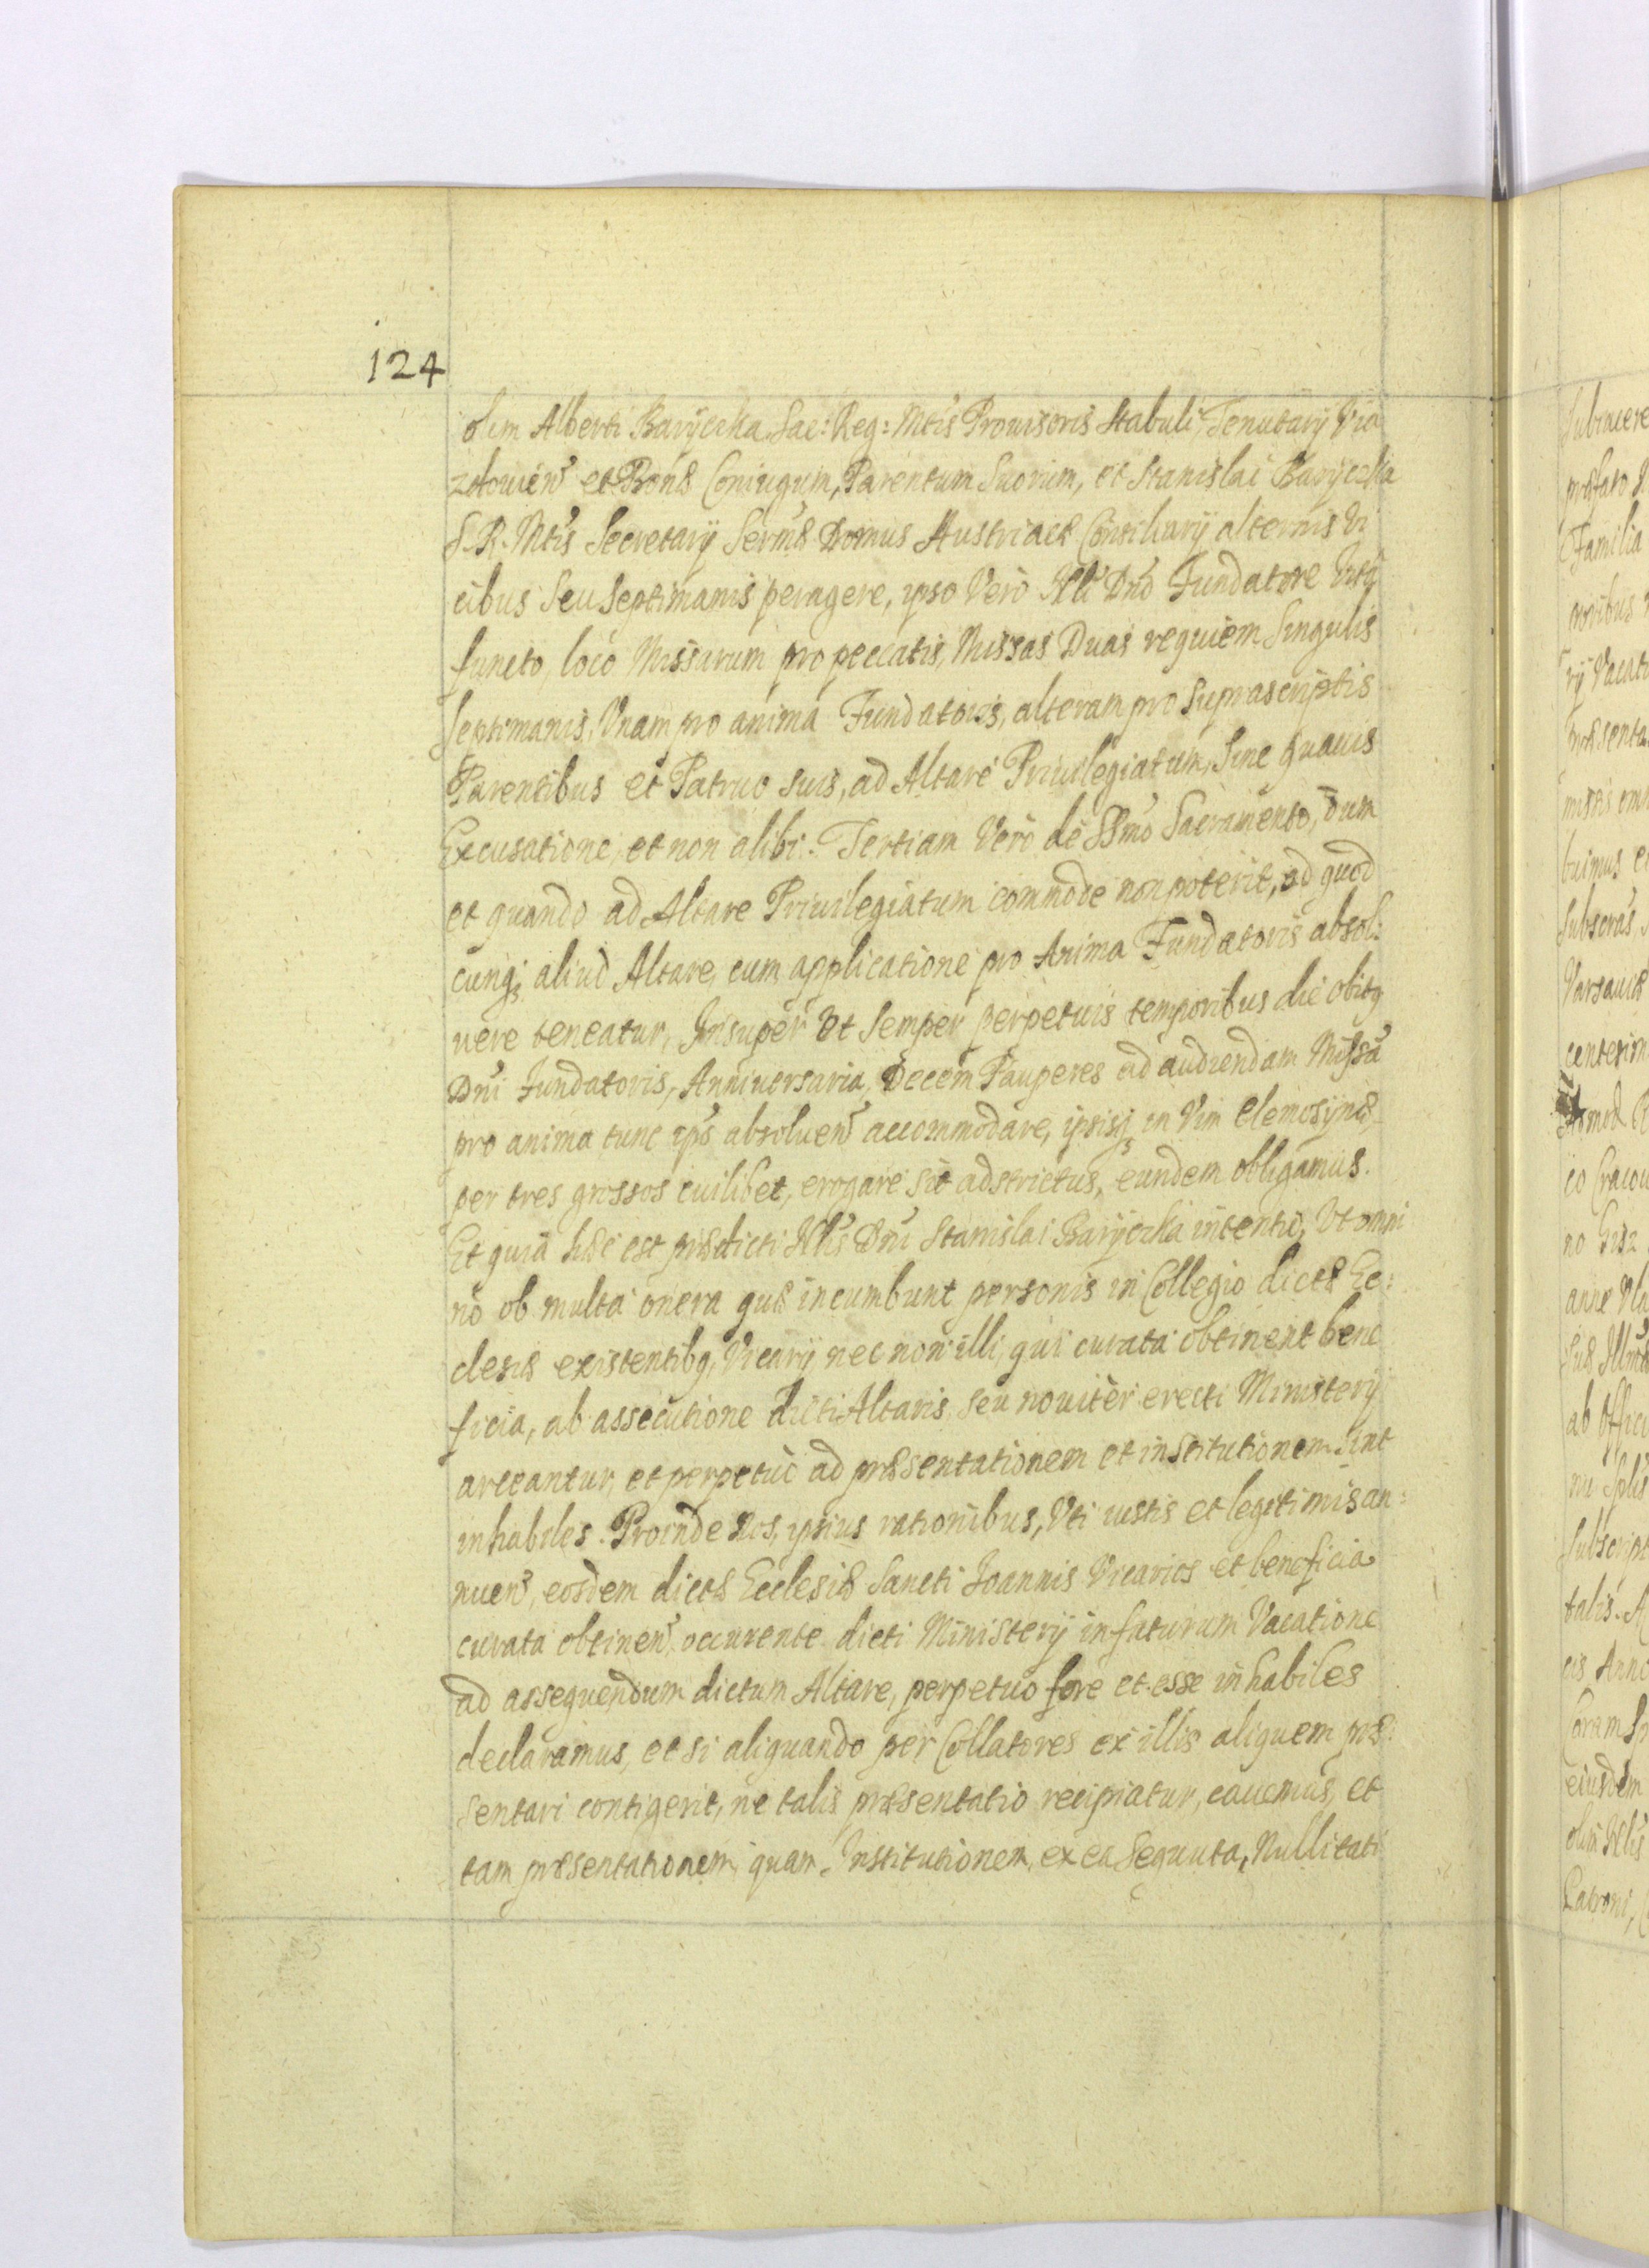 124
olim Alberti Baryczka Sac: Reg: Mtis Prouisoris Stabuli, Tenutarij Via
zdowien̄ et Conjugum, Parentum Suorum, et Stanislai Baryczka
S. R. Mtis Secretarij Sermæ Domus Austriacæ Consiliarij alternis Vi
cibus Seu Septimanis peragere, ipso Verò Illi Dno Fundatore Vitâ
functo, loco Missarum pro peccatis, Missas Duas requiem Singulis
Septimanis, Vnam pro anima Fundatoris, alteram pro Suprascriptis
Parentibus et Patruo Suis, ad Altare Priuilegiatum, Sine quauis
Excusatione, et non alibi. Tertiam Verò de SSmo Sacramento, dum
et quando ad Altare Priuilegiatum commode non poterit, ad quod
cunq; aliud Altare, cum applicatione pro Anima Fundatoris absol:
uere teneatur, Insuper Vt Semper perpetuis temporibus die obitg
Dni Fundatoris, Anniuersaria, Decem Pauperes ad audiendam Missā
pro anima tunc ips absoluen̄ accommodare, ipsisq; in Vim elemosynæ
per tres grossos cuilibet, erogare sit adstrictus, eundem obligamus.
Et quia hæc est prædicti Illis Dni Stanislai Baryczka intentio, Vt omni
nò ob multa onera quæ incumbunt personis in Collegio dictæ Ec:
clesiæ existentibg, Vicarij nec non illi, qui curata obtinent bene
ficia, ab assecutione dicti Altaris, seu nouiter erecti Ministerij
arceantur, et perpetuò ad præsentationem et institutionem sint
inhabiles. Proinde Nos, ipsius rationibus, Vti iustis et legitimis an:
nuen̄, eosdem dictæ Ecclesiæ Sancti Joannis Vicarios et beneficia
curata obtinen̄, occurente dicti Ministerij in futurum Vacatione
ad assequendum dictum Altare, perpetuo fore et esse inhabiles
declaramus, et si aliquando per Collatores ex illis aliquem præ:
sentari contigerit, ne talis præsentatio recipiatur, cauemus, et
tam præsentationem, quam Institutionem, ex ea Sequuta, Nullitati